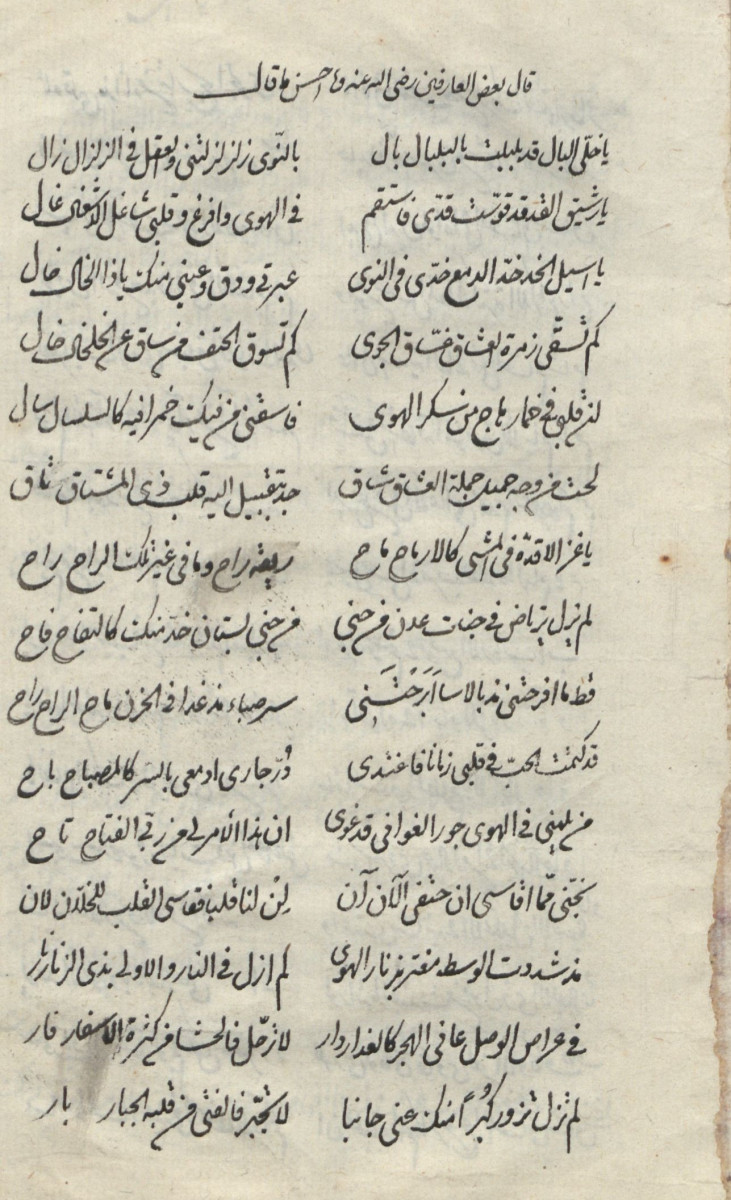 قال بعض العارفين رضى الله عنه وما احسن ما قال
يا خلّى البال قد بلبلت بالبلبال بال بالنّوى زلزلزلتنى والعقل فى الزلزال زال
يا رشيق القد قد قوّست قدّى فاستقم فى الهوى وافرغ وقلبى شاغل الاشغال غال
يا اسيل الخد خدّ الدمع خدّى فى النوى عبرتى ودق وعينى منك يا ذا الخال خال
كم تسقّى زمرة العشاق غسّاق الجوى كم تسوق الحتف من ساق عن الخلخال خال
لذ قلبى فى خمار هاج من سكر الهوى فاسقنى من فيك خمرا فيه كالسلسال سال
لحت من وجه جميل جملة العشاق شاق جد بتقبيل اليه قلب ذى المشتاق تاق
يا غزالا قدّه فى المشى كالارماح ماح ريقه راح وما فى غير تلك الراح راح
لم يزل يرتاض فى جنات عدن من جنى من جنى بستان خدّ منك كالتفاح فاح
قط ما افرحتنى مذ بالاسا اَبْرَحْتَنِى سر صباء مذ غدا فى الحزن ماح الراح راح
قد كتمت الحبّ فى قلبى زمانا فاغتدى دُرّ جارى ادمعى بالسر كالمصباح باح
من يلمنى فى الهوى جور الغوانى قد غوى ان هذا الأمر لى من ربّى الفتاح تاح
نجّنى ممّا اقاسى ان حتفى الآن آن لِنْ لنا قلبا فقاسى القلب للخلّان لان
مذ شددت الوسط مغتر بزنار الهوى لم ازل فى النار والاولى بذى الزنار نار
فى عراص الوصل عافى الهجر كالغدار دار لا ترحّل فالحشا من كثرة الاسفار فار
لم تزل تزور كُبْراً منك عنى جانبا لا تجبّر فالفتى من قلبه الجبار بار